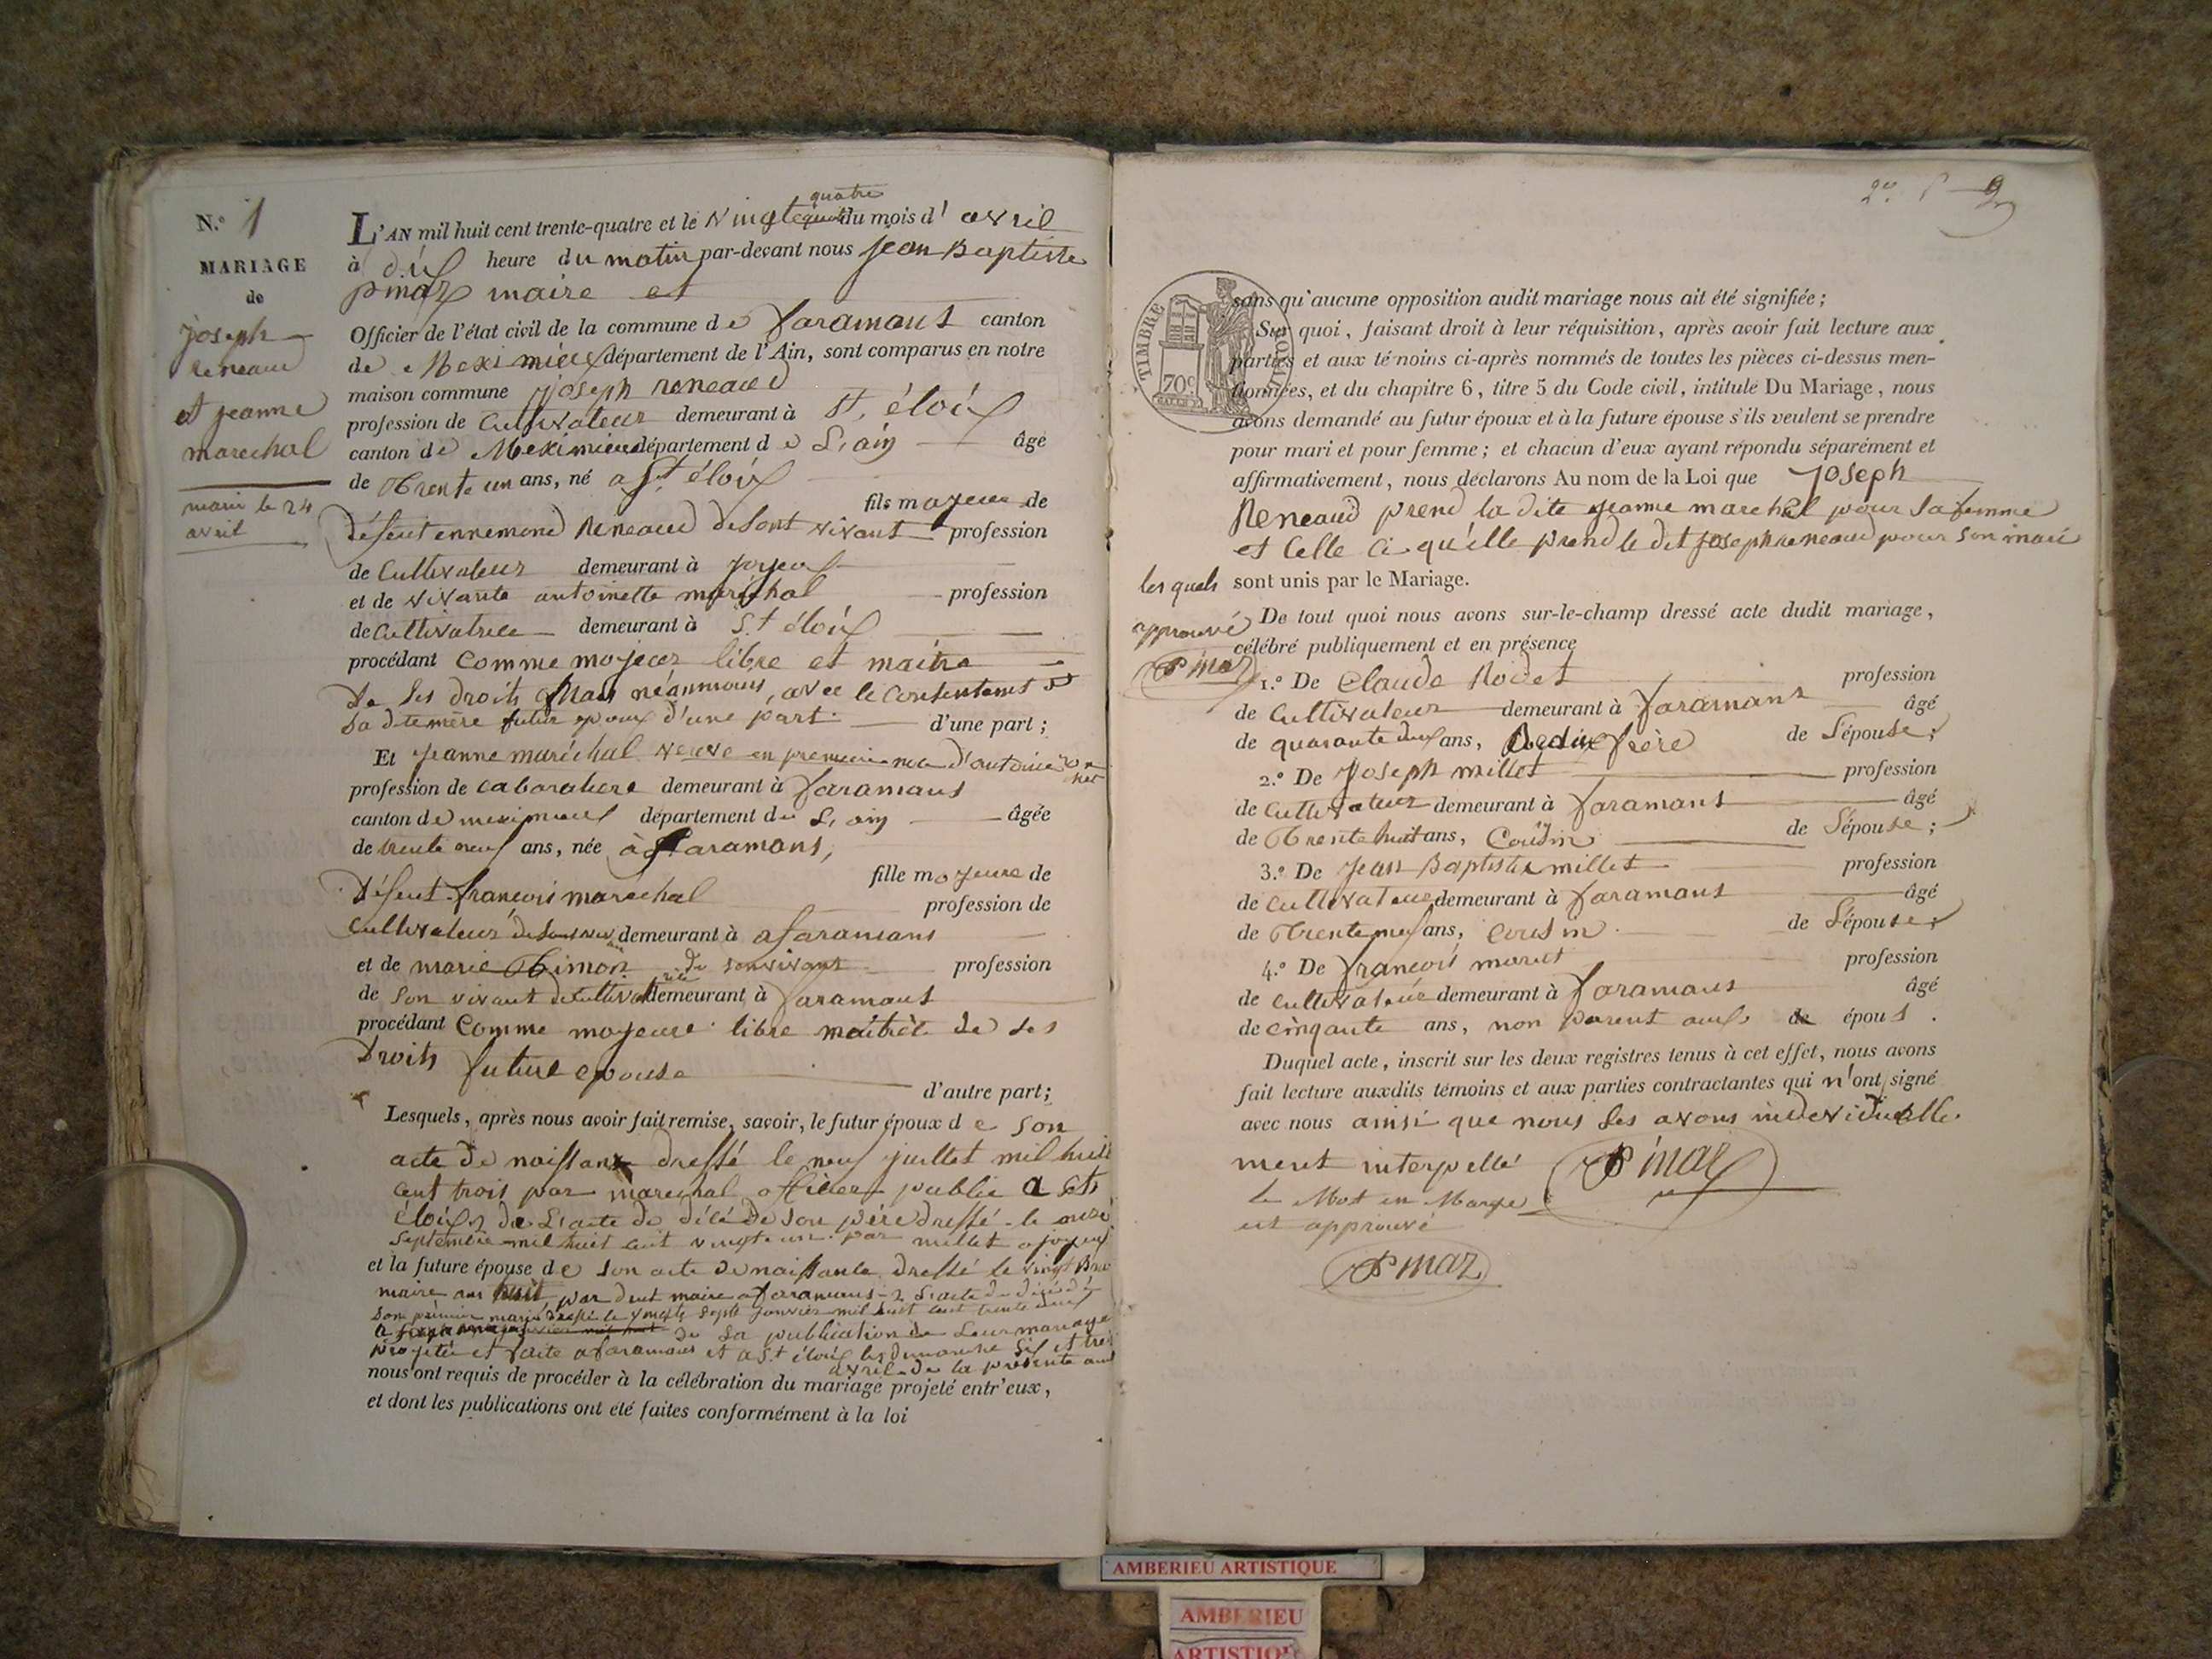 N.° 1
MARIAGE
de
joseph
reneaud
et jeanne
marechal
marié le 24
avril
quatre
L'AN mil huit cent trente-quatre et le vingt du mois d' avril
à dix heure du matin par-devant nous Jean Baptiste
pmaz maire et
Officier de l'état civil de la commune de faramans canton
de Meximieux département de l'Ain, sont comparus en notre
maison commune joseph reneaud
profession de Cultivateur demeurant à St. éloix
canton de Meximieux département de L'ain âgé
de Trente un ans, né a St. éloix
fils majeur de
défeut ennemond Reneaud de sont vivant profession
de Cultivateur demeurant à joyeux
et de vivante antoinette maréchal profession
de Cultivatrice demeurant à St éloix
procédant Comme majeur libre et maitre
de ses droits Mais néanmoins, avec le Consentement de
sa dite mère futur epoux d'une part d'une part ;
Et Jeanne maréchal veuve en premiere d'antoine
profession de cabaratiere demeurant à faramans
canton de meximieux département de L'ain âgée
de trente neuf ans, née à faramans,
fille majeure de
Défeut françois marechal profession de
Cultivateur de son vivan demeurant à afaramans
et de marie Timon de son vivant profession
de son vivant de Cultivatrice demeurant à faramans
procédant Comme majeure libre maitrèce de ses
Droits future epouse
d'autre part ;
Lesquels, après nous avoir fait remise, savoir, le futur époux de son
acte de naissance dressé le neuf juillet mil huit
cent trois par marechal officier publie a St
éloix 2 de L'acte de décé de son père dressé le onze
Septembre mil huit cent vingt un par millet a joyeux
et la future épouse de son acte de naissance dressé le vingt Bru
maire an huit par dent maire a faramans 2 L'acte de décé de
son premier marie dressé le vingt sept janvier mil huit cent trente deux
a faramans de La publication de Leur mariage
projeté et faite a faramans et a St éloix les dimanche Six et trei
avril de la presente ané
nous ont requis de procéder à la célébration du mariage projeté entr'eux,
et dont les publications ont été faites conformément à la loi
TIMBRE ROYAL
70c
sans qu'aucune opposition audit mariage nous ait été signifiée ;
Sur quoi, faisant droit à leur réquisition, après avoir fait lecture aux
parties et aux témoins ci-après nommés de toutes les pièces ci-dessus men-
tionnées, et du chapitre 6, titre 5 du Code civil, intitulé Du Mariage, nous
avons demandé au futur époux et à la future épouse s'ils veulent se prendre
pour mari et pour femme ; et chacun d'eux ayant répondu séparément et
affirmativement, nous déclarons Au nom de la Loi que Joseph
Reneaud prend la dite jeanne marechal pour sa femme
et Celle Ci qu'elle prend le dit joseph reneaud pour son mari
les quels sont unis par le Mariage.
De tout quoi nous avons sur-le-champ dressé acte dudit mariage,
approuvé
célébré publiquement et en présence
Pmaz
1.° De Claude Rodet profession
de Cultivateur demeurant à faramans âgé
de quarante deux ans, frère de L'épouse ;
2.° De Joseph millet profession
de Cultivateur demeurant à faramans âgé
de Trente huit ans, Cousin de L'épouse ;
3.° De Jean Baptiste millet profession
de Cultivateur demeurant à faramans âgé
de Trente neuf ans, cousin de L'épouse ;
4.° De françois moret profession
de cultivateur demeurant à faramans âgé
de cinqante ans, non parent aux époux .
Duquel acte, inscrit sur les deux registres tenus à cet effet, nous avons
fait lecture auxdits témoins et aux parties contractantes qui n'ont signé
avec nous ainsi que nous Les avons individuelle
ment interpellé Pmaz
le Mot en Marge
est approuvé
Pmaz
AMBERIEU ARTISTIQUE
AMBERIEU
ARTISTIQUE